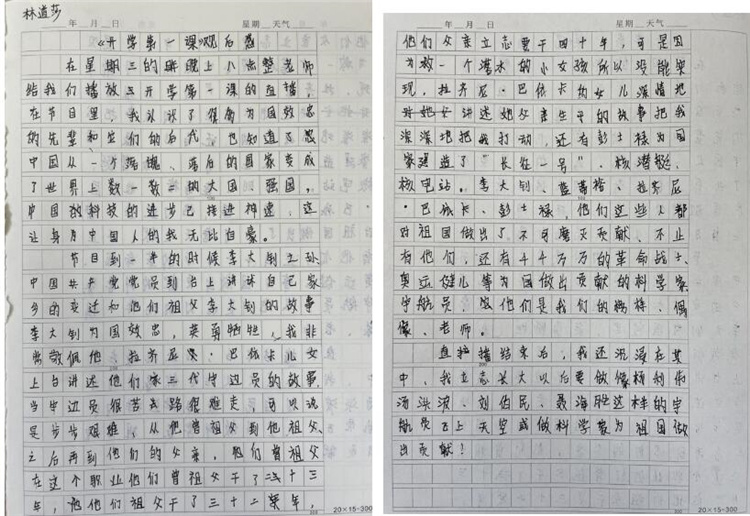 林道莎
年 月 日 星期 天气
《开学第一课》观后感
在星期三的晚上八点整老师
给我们播放了开学第一课的直播，
在节目里，我认识了很多为国效忠
的先辈和它们的后代，也知道了
中国从一个落魄、落后的国家变成
了世界上数一数二的大国、强国，
中国的科技的进步已接进神速，这
让身为中国人的我无比自豪。
节目到一半的时候李大钊之孙
中国共产党党员到台上讲述自己家
乡的变迁和他们祖父李大钊的故事
李大钊为国效忠，英勇牺牲，我非
常敬佩他，拉齐尼·巴依卡儿女
上台讲述他们家三代守边员的故事，
当守边员很苦，路很难走，可以说
是步步艰难，从他曾祖父到他祖父
之后再到他们的父亲，他们曾祖父
在这个职业他们曾祖父干了二十三
年，他们祖父干了三十二年，
20×15=300
年 月 日 星期 天气
他们父亲立志要干四十年，可是因
为救一个落水的小女孩所以没能实
现，拉齐尼·巴依卡的女儿深情地
讲述她父亲生平的故事把我
深深地把我打动，还有彭士禄为国
家建造了“长征一号”、核潜艇、
核电站。李大钊、 拉齐尼
·巴依卡、彭士禄，他们这些人都
对祖国做出了不可磨灭贡献、不止
有他们，还有千千万万的革命战士、
奥运健儿等为国做出贡献的科学家
宇航员，他们是我们的榜样、偶
像、老师。
直播结束后，我还沉浸在其
中，我立志长大以后要做像
汤洪波、刘伯明、聂海胜这样的宇
航员飞上天空或做科学家为祖国做
出贡献！
20×15=300